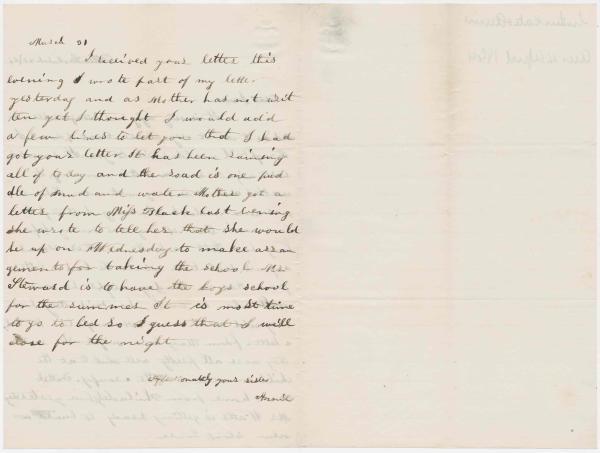 March 31
I received your letter this
evening I wrote part of my letter
yesterday and as Mother has not writ
ten yet I thought I would add
a few lines to let you that I had
got your letter It has been raining
all of today and the road is one pud
dle of mud and water Mother got a
letter from Miss Black last evening
she wrote to tell her that she would
be up on Wednesday to make arran
gements for taking the school Mr
Steward is to have the boys school
for the summer It is most time
to go to bed so I guess that I will
close for the night
Affectionately your sister